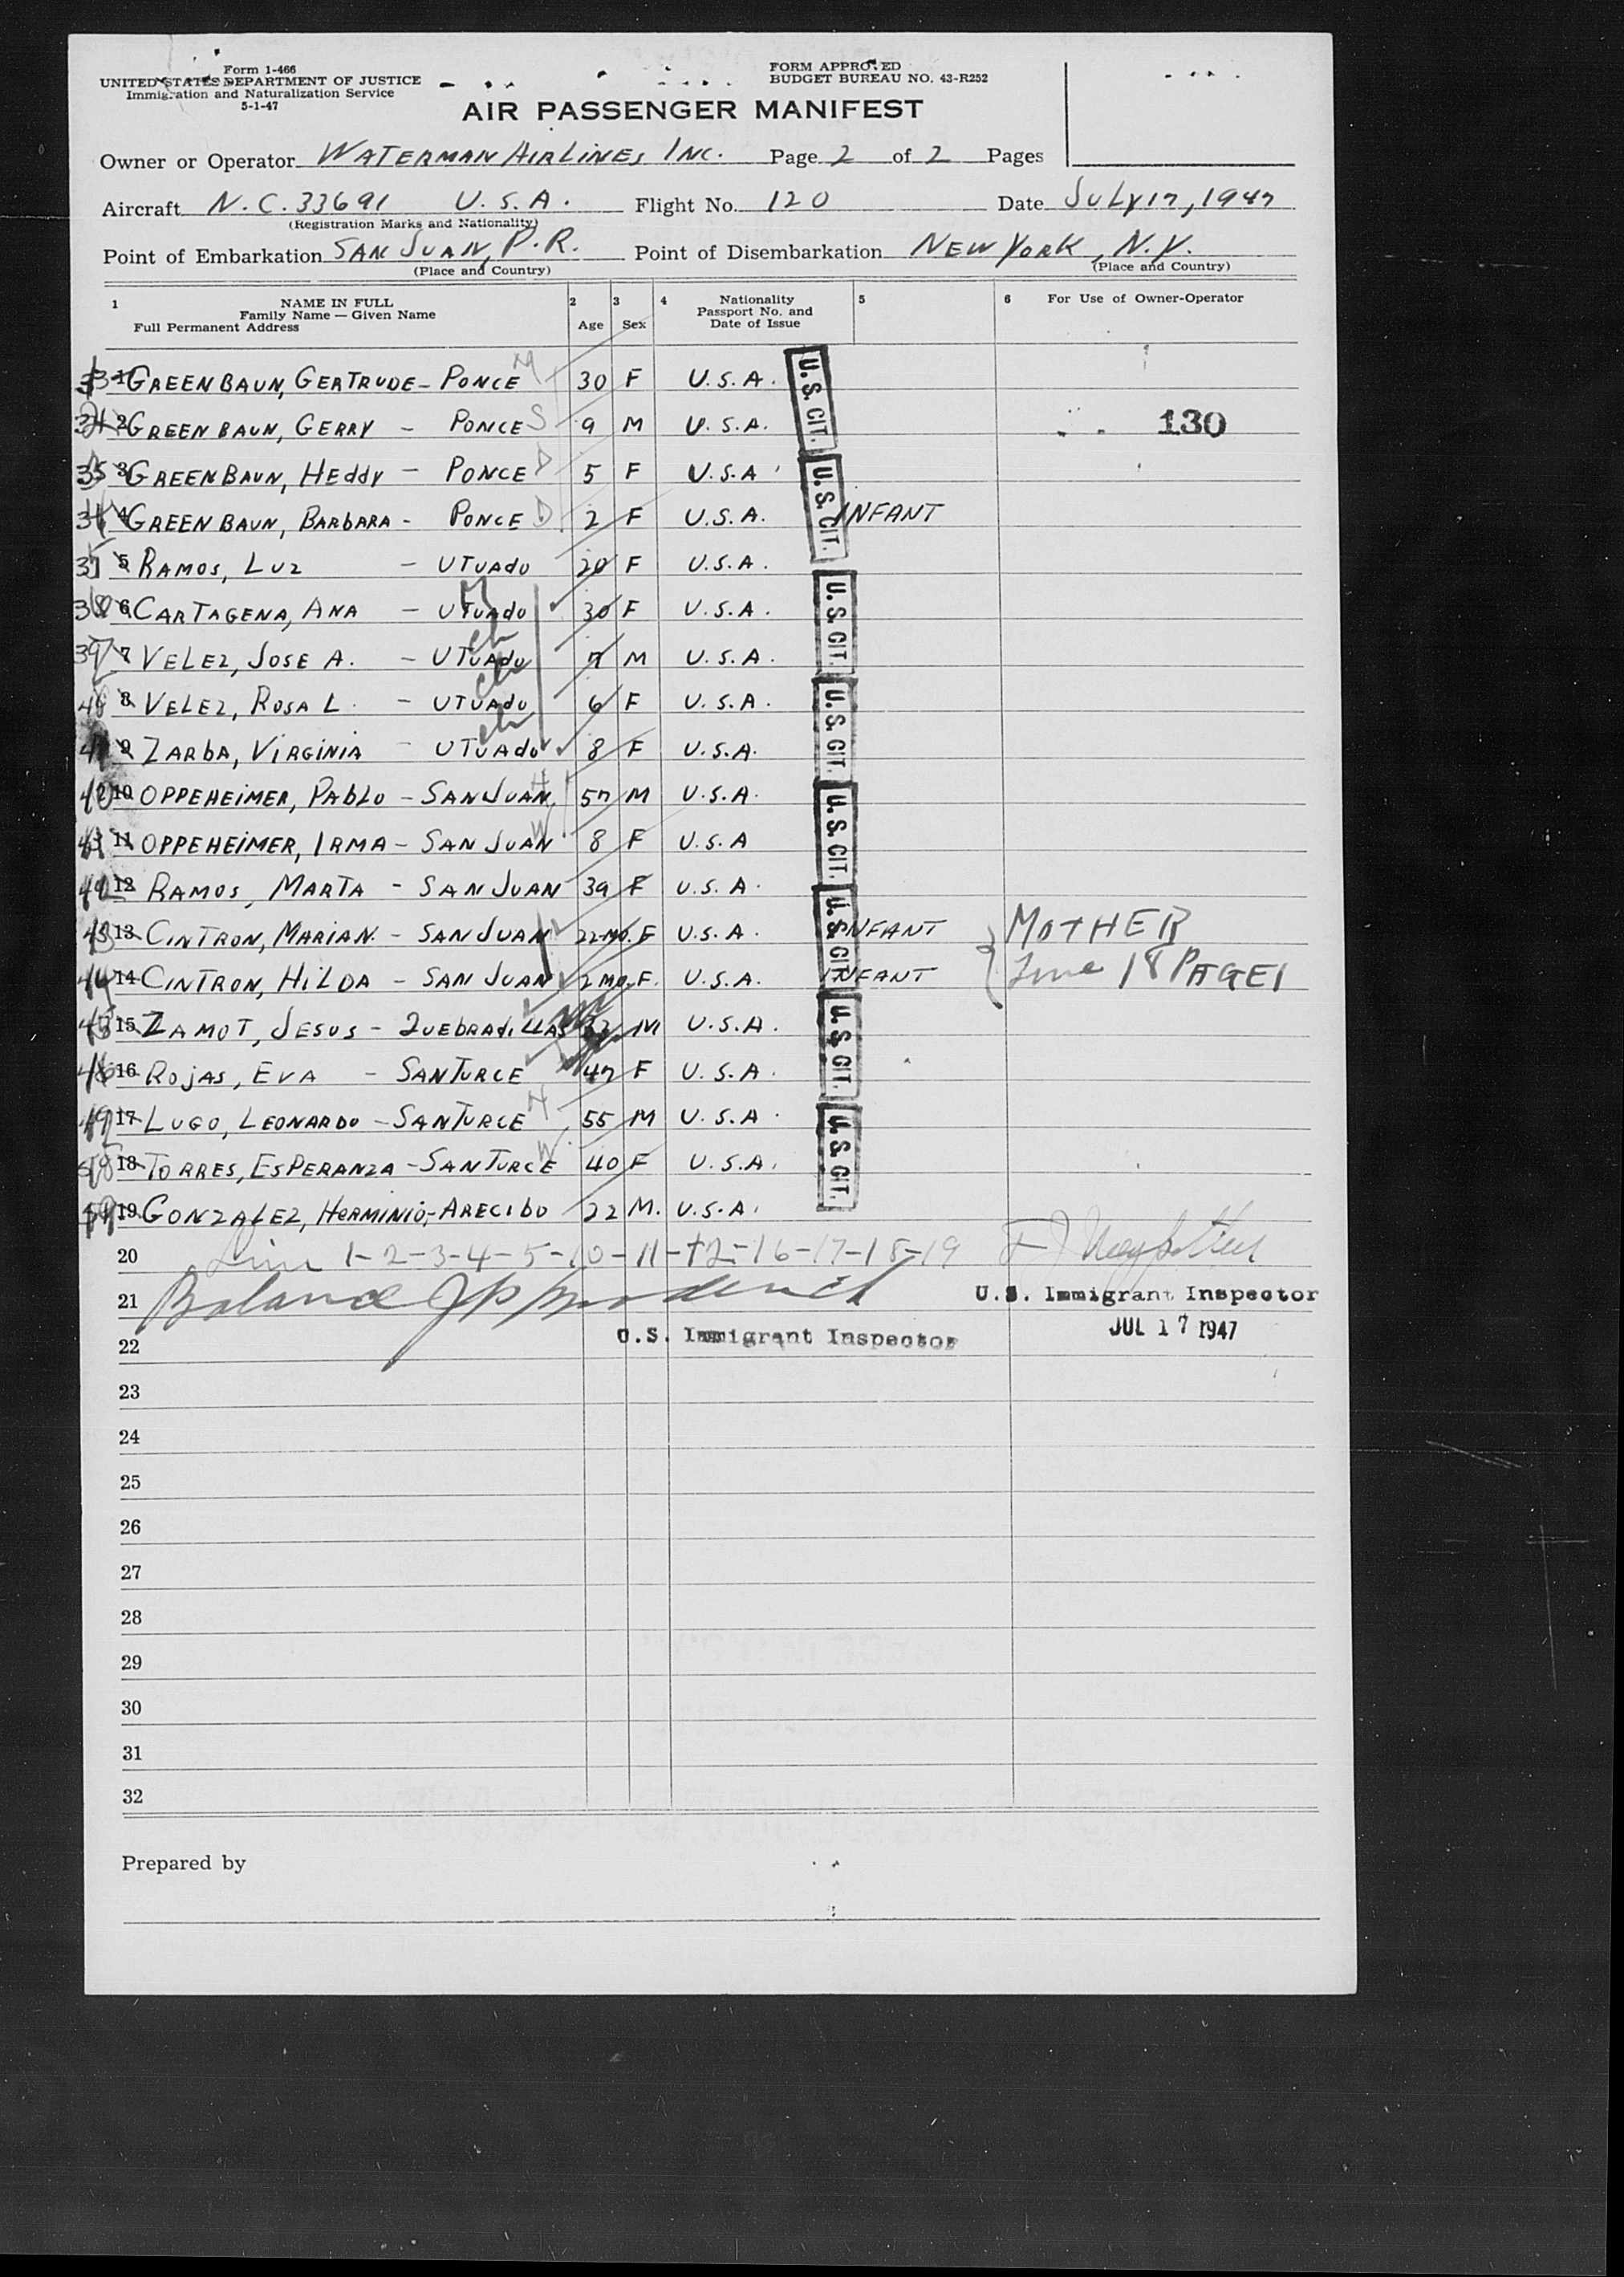 Form 1-466
UNITED STATES DEPARTMENT OF JUSTICE
Immigration and Naturalization Service
5-1-47
FORM APPROVED
BUDGET BUREAU NO. 43-R252
AIR PASSENGER MANIFEST
Owner or Operator WATERMAN AIRLINES INC. Page 2 of 2 Pages
Aircraft N.C. 33691 U.S.A. Flight No. 120 Date JULY 17, 1947
(Registration Marks and Nationality)
Point of Embarkation SAN JUAN, P.R. Point of Disembarkation NEW YORK, N.Y.
(Place and Country) (Place and Country)
1 NAME IN FULL 2 3 4 Nationality 5 6 For Use of Owner-Operator
Family Name — Given Name Passport No. and
Full Permanent Address Age Sex Date of Issue
33 1 GREENBAUN, GERTRUDE - PONCE M 30 F U.S.A. U.S. CIT.
34 2 GREENBAUN, GERRY - PONCE S 9 M U.S.A. 130
35 3 GREENBAUN, HEDDY - PONCE D 5 F U.S.A. U.S. CIT.
4 GREENBAUN, BARBARA - PONCE D 2 F U.S.A. INFANT
37 5 RAMOS, LUZ - UTUADO 20 F U.S.A.
38 6 CARTAGENA, ANA - UTUADO M 30 F U.S.A. U.S. CIT.
39 7 VELEZ, JOSE A. - UTUADO ch 7 M U.S.A.
8 VELEZ, ROSA L. - UTUADO ch 6 F U.S.A. U.S. CIT.
9 ZARBA, VIRGINIA - UTUADO ch 8 F U.S.A.
10 OPPEHEIMER, PABLO - SAN JUAN H 57 M U.S.A. U.S. CIT.
11 OPPEHEIMER, IRMA - SAN JUAN W 8 F U.S.A
12 RAMOS, MARTA - SAN JUAN 39 F U.S.A. U.S. CIT.
13 CINTRON, MARIAN. - SAN JUAN 22 MO. F U.S.A. INFANT MOTHER
14 CINTRON, HILDA - SAN JUAN 2 MO. F. U.S.A. INFANT Line 18 PAGE 1
15 ZAMOT, JESUS - QUEBRADILLAS M U.S.A. U.S. CIT.
16 ROJAS, EVA - SANTURCE 47 F U.S.A.
17 LUGO, LEONARDO - SANTURCE H 55 M U.S.A. U.S. CIT.
18 TORRES, ESPERANZA - SANTURCE W 40 F U.S.A.
19 GONZALEZ, HERMINIO - ARECIBO 22 M. U.S.A.
20 Line 1-2-3-4-5-10-11-12-16-17-18-19
21 Balance
U.S. Immigrant Inspector
22 U.S. Immigrant Inspector JUL 17 1947
23
24
25
26
27
28
29
30
31
32
Prepared by